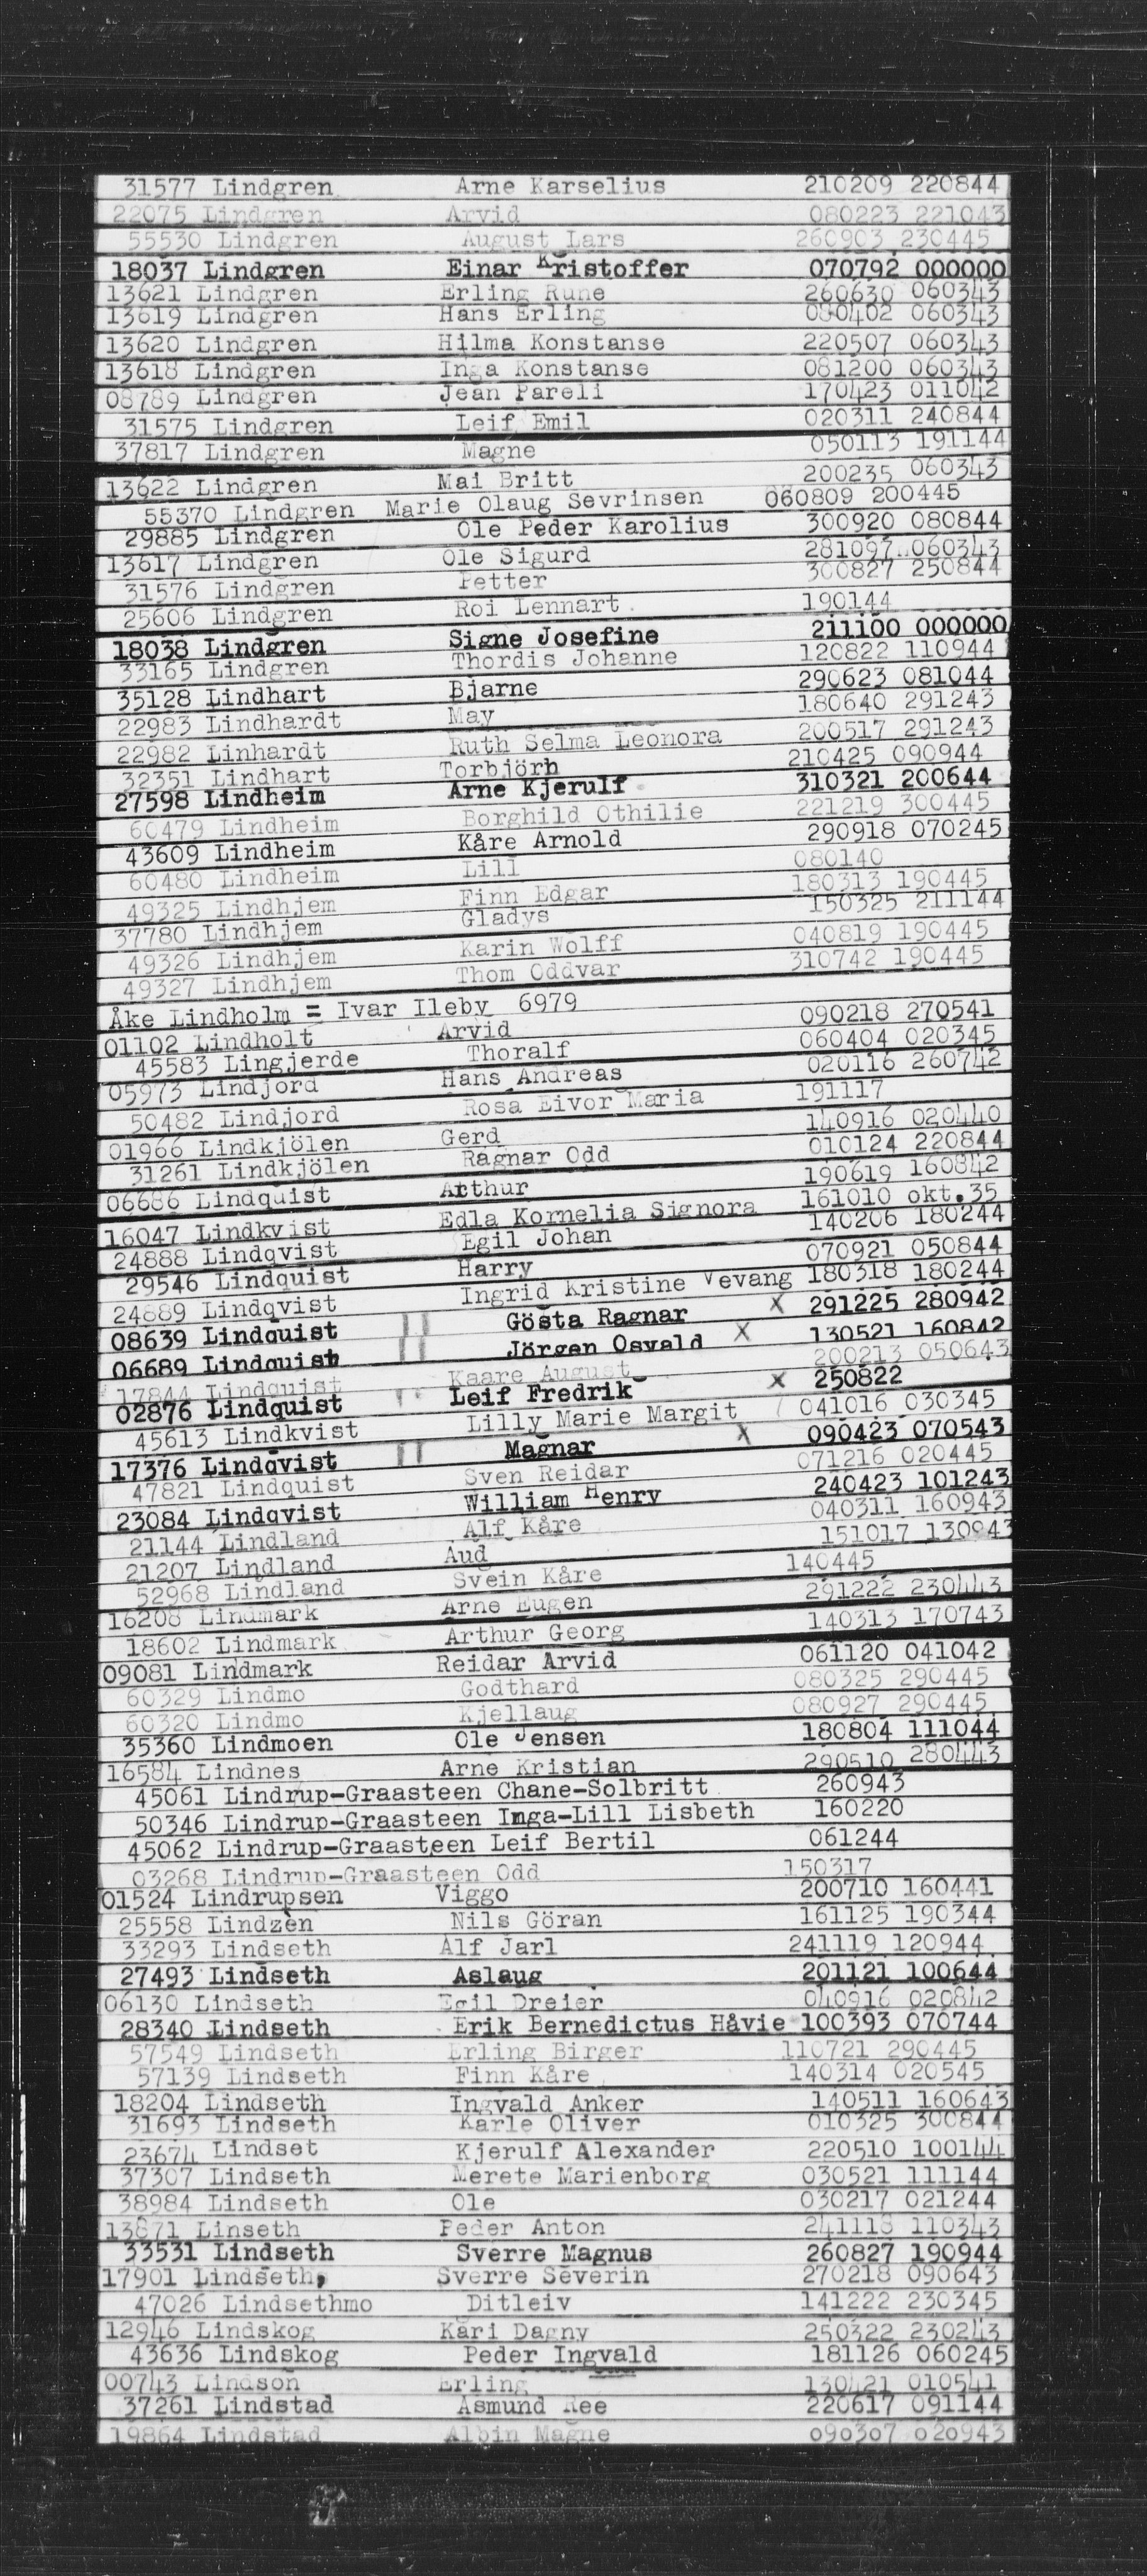 31577 Lindgren Arne Karselius 210209 220844
22075 Lindgren Arvid 080223 221043
55530 Lindgren August Lars 260903 230445
18037 Lindgren Einar Kristoffer 070792 000000
13621 Lindgren Erling Rune 260630 060343
13619 Lindgren Hans Erling 080402 060343
13620 Lindgren Hilma Konstanse 220507 060343
13618 Lindgren Inga Konstanse 081200 060343
08789 Lindgren Jean Pareli 170423 011042
31575 Lindgren Leif Emil 020311 240844
37817 Lindgren Magne 050113 191144
13622 Lindgren Mai Britt 200235 060343
55370 Lindgren Marie Olaug Sevrinsen 060809 200445
29885 Lindgren Ole Peder Karolius 300920 080844
13617 Lindgren Ole Sigurd 281097 060343
31576 Lindgren Petter 300827 250844
25606 Lindgren Roi Lennart 190144
18038 Lindgren Signe Josefine 211100 000000
33165 Lindgren Thordis Johanne 120822 110944
35128 Lindhart Bjarne 290623 081044
22983 Lindhardt May 180640 291243
22982 Linhardt Ruth Selma Leonora 200517 291243
32351 Lindhart Torbjörn 210425 090944
27598 Lindheim Arne Kjerulf 310321 200644
60479 Lindheim Borghild Othilie 221219 300445
43609 Lindheim Kåre Arnold 290918 070245
60480 Lindheim Lill 080140
49325 Lindhjem Finn Edgar 180313 190445
37780 Lindhjem Gladys 150325 211144
49326 Lindhjem Karin Wolff 040819 190445
49327 Lindhjem Thom Oddvar 310742 190445
Åke Lindholm = Ivar Ileby 6979
01102 Lindholt Arvid 090218 270541
45583 Lingjerde Thoralf 060404 020345
05973 Lindjord Hans Andreas 020116 260742
50482 Lindjord Rosa Eivor Maria 191117
01966 Lindkjölen Gerd 140916 020440
31261 Lindkjölen Ragnar Odd 010124 220844
06686 Lindquist Arthur 190619 160842
16047 Lindkvist Edla Kornelia Signora 161010 okt.35
24888 Lindqvist Egil Johan 140206 180244
29546 Lindquist Harry 070921 050844
24889 Lindqvist Ingrid Kristine Vevang 180318 180244
08639 Lindquist || Gösta Ragnar X 291225 280942
06689 Lindquist || Jörgen Osvald X 130521 160842
17844 Lindquist Kaare August 200213 050643
02876 Lindquist || Leif Fredrik X 250822
45613 Lindkvist Lilly Marie Margit 041016 030345
17376 Lindqvist || Magnar X 090423 070543
47821 Lindquist Sven Reidar 071216 020445
23084 Lindqvist William Henry 240423 101243
21144 Lindland Alf Kåre 040311 160943
21207 Lindland Aud 151017 130943
52968 Lindland Svein Kåre 140445
16208 Lindmark Arne Eugen 291222 230443
18602 Lindmark Arthur Georg 140313 170743
09081 Lindmark Reidar Arvid 061120 041042
60329 Lindmo Godthard 080325 290445
60320 Lindmo Kjellaug 080927 290445
35360 Lindmoen Ole Jensen 180804 111044
16584 Lindnes Arne Kristian 290510 280443
45061 Lindrup-Graasteen Chane-Solbritt 260943
50346 Lindrup-Graasteen Inga-Lill Lisbeth 160220
45062 Lindrup-Graasteen Leif Bertil 061244
03268 Lindrup-Graasteen Odd 150317
01524 Lindrupsen Viggo 200710 160441
25558 Lindzèn Nils Göran 161125 190344
33293 Lindseth Alf Jarl 241119 120944
27493 Lindseth Aslaug 201121 100644
06130 Lindseth Egil Dreier 040916 020842
28340 Lindseth Erik Bernedictus Håvie 100393 070744
57549 Lindseth Erling Birger 110721 290445
57139 Lindseth Finn Kåre 140314 020545
18204 Lindseth Ingvald Anker 140511 160643
31693 Lindseth Karle Oliver 010325 300844
23674 Lindset Kjerulf Alexander 220510 100144
37307 Lindseth Merete Marienborg 030521 111144
38984 Lindseth Ole 030217 021244
13871 Linseth Peder Anton 241118 110343
33531 Lindseth Sverre Magnus 260827 190944
17901 Lindseth, Sverre Severin 270218 090643
47026 Lindsethmo Ditleiv 141222 230345
12946 Lindskog Kari Dagny 250322 230243
43636 Lindskog Peder Ingvald 181126 060245
00743 Lindson Erling 130421 010541
37261 Lindstad Asmund Ree 220617 091144
19864 Lindstad Albin Magne 090307 020943